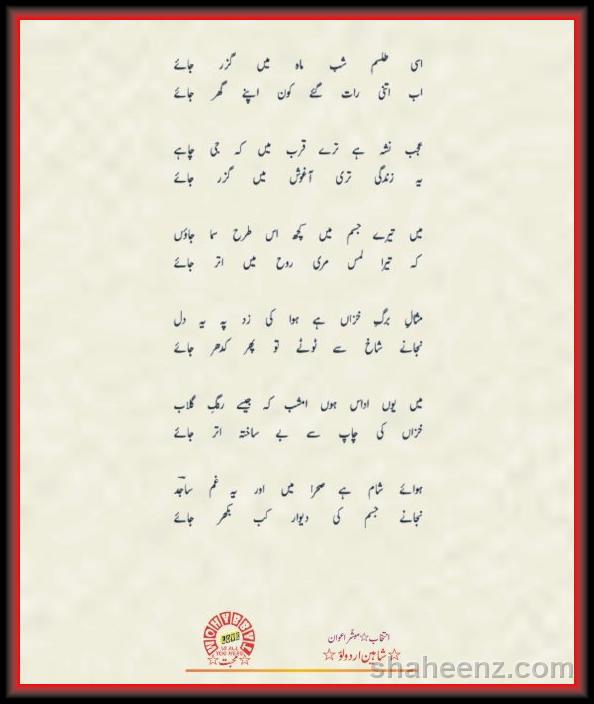 اسی طلسم شب ماہ میں گزر جائے
اب اتنی رات گئے کون اپنے گھر جائے
عجب نشہ ہے ترے قرب میں کہ جی چاہے
یہ زندگی تری آغوش میں گزر جائے
میں تیرے جسم میں کچھ اس طرح سما جاؤں
کہ تیرا لمس مری روح میں اتر جائے
مثالِ برگِ خزاں ہے ہوا کی زد پہ یہ دل
نجانے شاخ سے ٹوٹے تو پھر کدھر جائے
میں یوں اداس ہوں امشب کہ جیسے رنگِ گلاب
خزاں کی چاپ سے بے ساختہ اتر جائے
ہوائے شام ہے صحرا میں اور یہ غم ساجدؔ
نجانے جسم کی دیوار کب بکھر جائے
انتخاب☆مبشر اعوان
☆شاہین اردو لَو☆
LOVE
IS ALL
YOU NEED
☆محبت☆
shaheenz.com